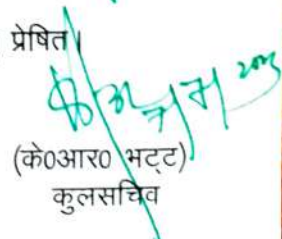 प्रेषित।
(के0आर0 भट्ट)
कुलसचिव